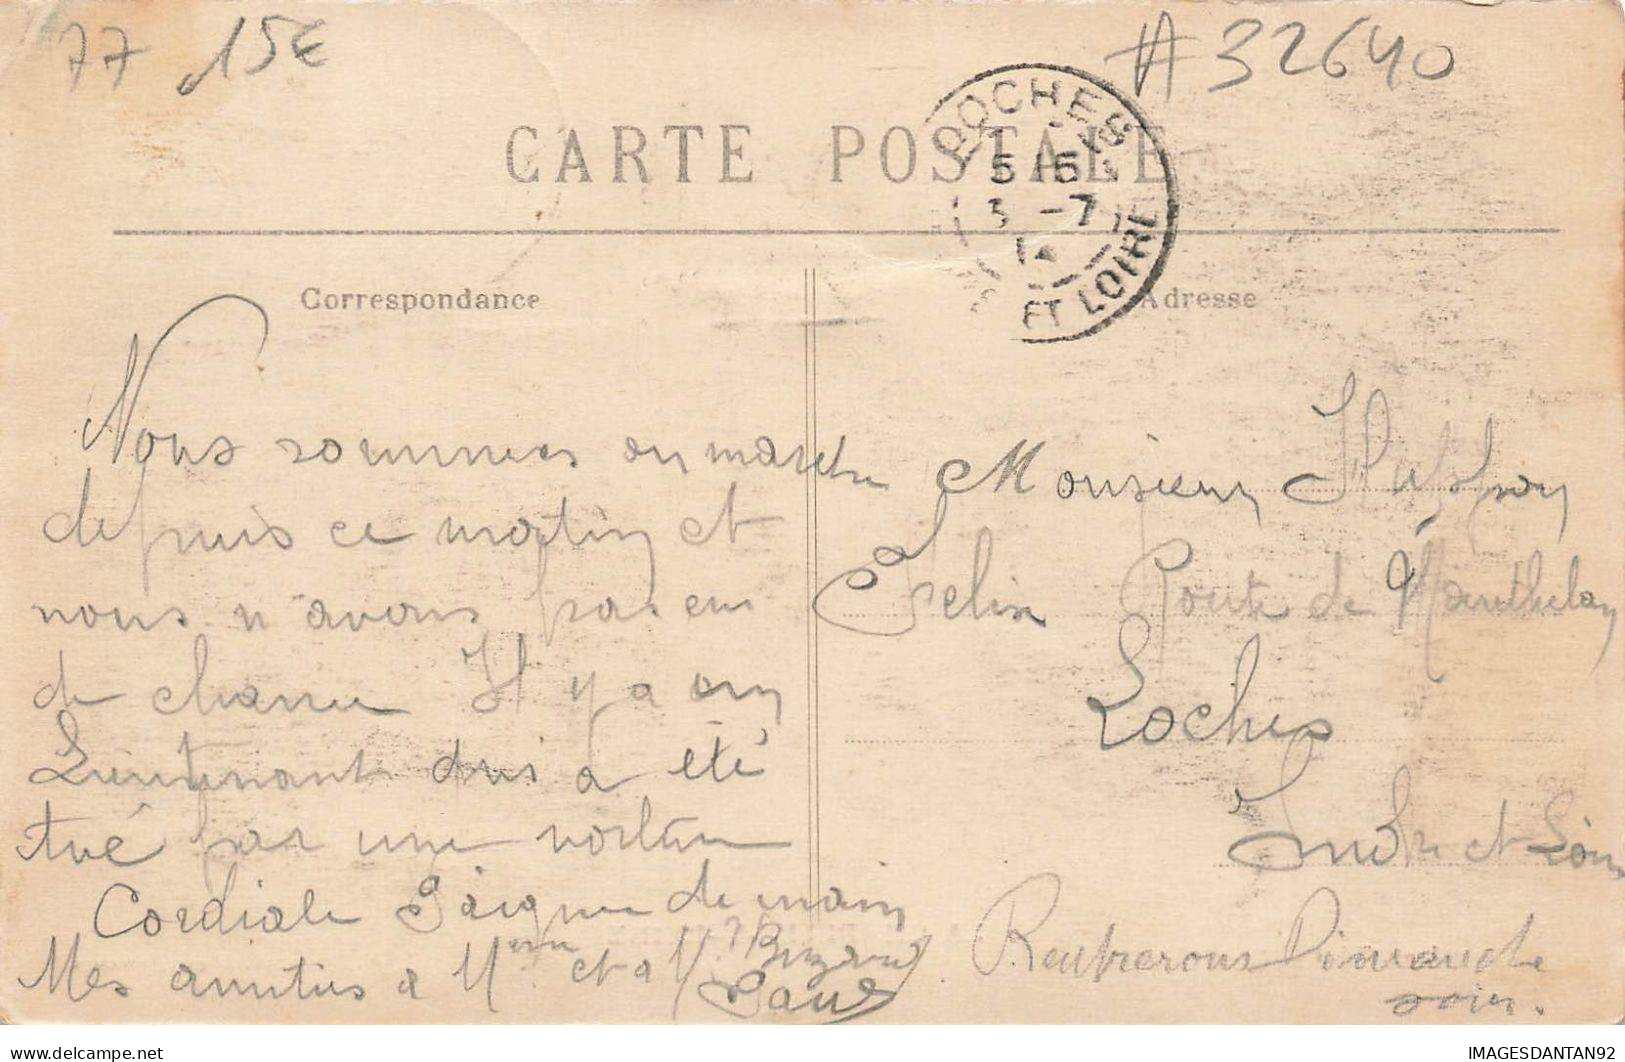 77 15€ #32640
CARTE POSTALE
LOCHES
5 15
3 -7
ET LOIRE
Correspondance
Adresse
Nous sommes en marche
depuis ce matin et
nous n'avons pas eu
de chance Il y a un
Lieutenant qui a été
tué par une voiture
Cordiale Poignée de main
Mes amitiés à Mme et a M
Paul
Monsieur
Felix Route de Manthelan
Loches
Indre et Loire
Rentrerons Dimanche
soir.
IMAGESDANTAN92